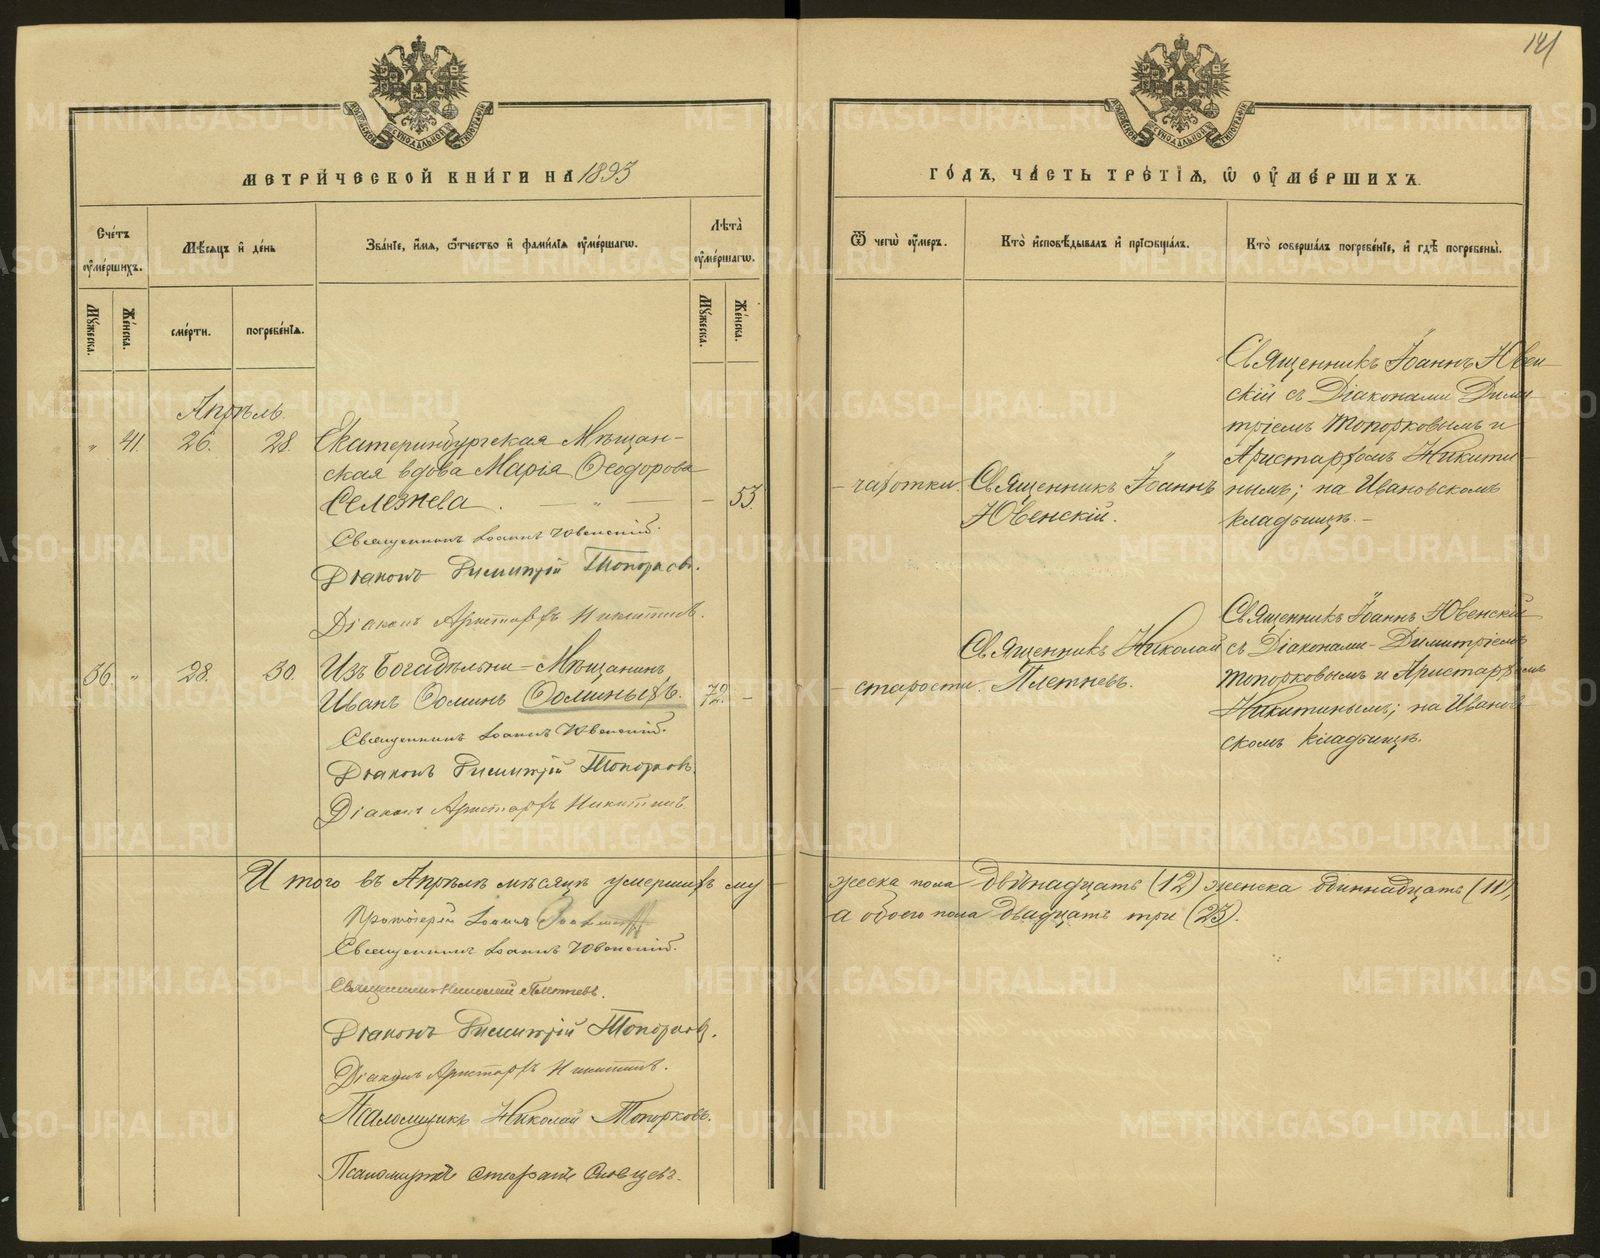 141
МЕТРИ́ЧЕСКОЙ КНИ́ГИ НА 1893
ГО́ДЪ, ЧА́СТЬ ТРЕ́ТІѦ, Ѽ ОУ҆МЕ́РШИХЪ.
Сче́тъ оу҆ме́ршихъ.
Мѣ́сяцъ и҆ де́нь
Зва́ніе, и҆́мя, ѻ҆́тчество и҆ фами́лія оу҆ме́ршагѡ.
Лѣта̀ оу҆ме́ршагѡ.
Ѿ чегѡ̀ оу҆́меръ.
Кто̀ и҆сповѣ́дывалъ и҆ прїѡбща́лъ.
Кто̀ соверша́лъ погребе́ніе, и҆ гдѣ̀ погребены̀.
Мꙋ́жеска.
Же́нска.
сме́рти.
погребе́нія.
Мꙋ́жеска.
Же́нска.
Апрѣль.
" 41. 26. 28.
Екатеринбургская Мѣщан-
ская вдова Марія Ѳеодорова
Селезнева. — " — — 53.
Священникъ Іоаннъ Ювенскій.
Діаконъ Димитрій Топорковъ.
Діаконъ Аристархъ Никитинъ.
- чахотки.
Священникъ Іоаннъ
Ювенскій.
Священникъ Іоаннъ Ювен
скій съ Діаконами Дими
тріемъ Топорковымъ и
Аристархомъ Никити-
нымъ; на Ивановскомъ
кладбищѣ.-
36. " 28. 30.
Изъ Богадѣльни - Мѣщанинъ
Иванъ Ѳоминъ Ѳоминыхъ. 72. -
Священникъ Іоаннъ Ювенскій.
Діаконъ Димитрій Топорковъ.
Діаконъ Аристархъ Никитинъ
- старости.
Священникъ Николай
Плетневъ.
Священникъ Іоаннъ Ювенскій
съ Діаконами - Димитріемъ
Топорковымъ и Аристархомъ
Никитинымъ; на Иванов
скомъ кладбищѣ.
Итого въ Апрѣлѣ мѣсяцѣ умершихъ му-
жеска пола двѣнадцать (12) женска одиннадцать (11),
а обоего пола двадцать три (23).
Протоіерей Іоаннъ
Священникъ Іоаннъ Ювенскій.
Священникъ Николай Плетневъ.
Діаконъ Димитрій Топорковъ.
Діаконъ Аристархъ Никитинъ.
Псаломщикъ Николай Топорковъ.
Псаломщикъ Стефанъ Словцовъ.
METRIKI.GASO-URAL.RU